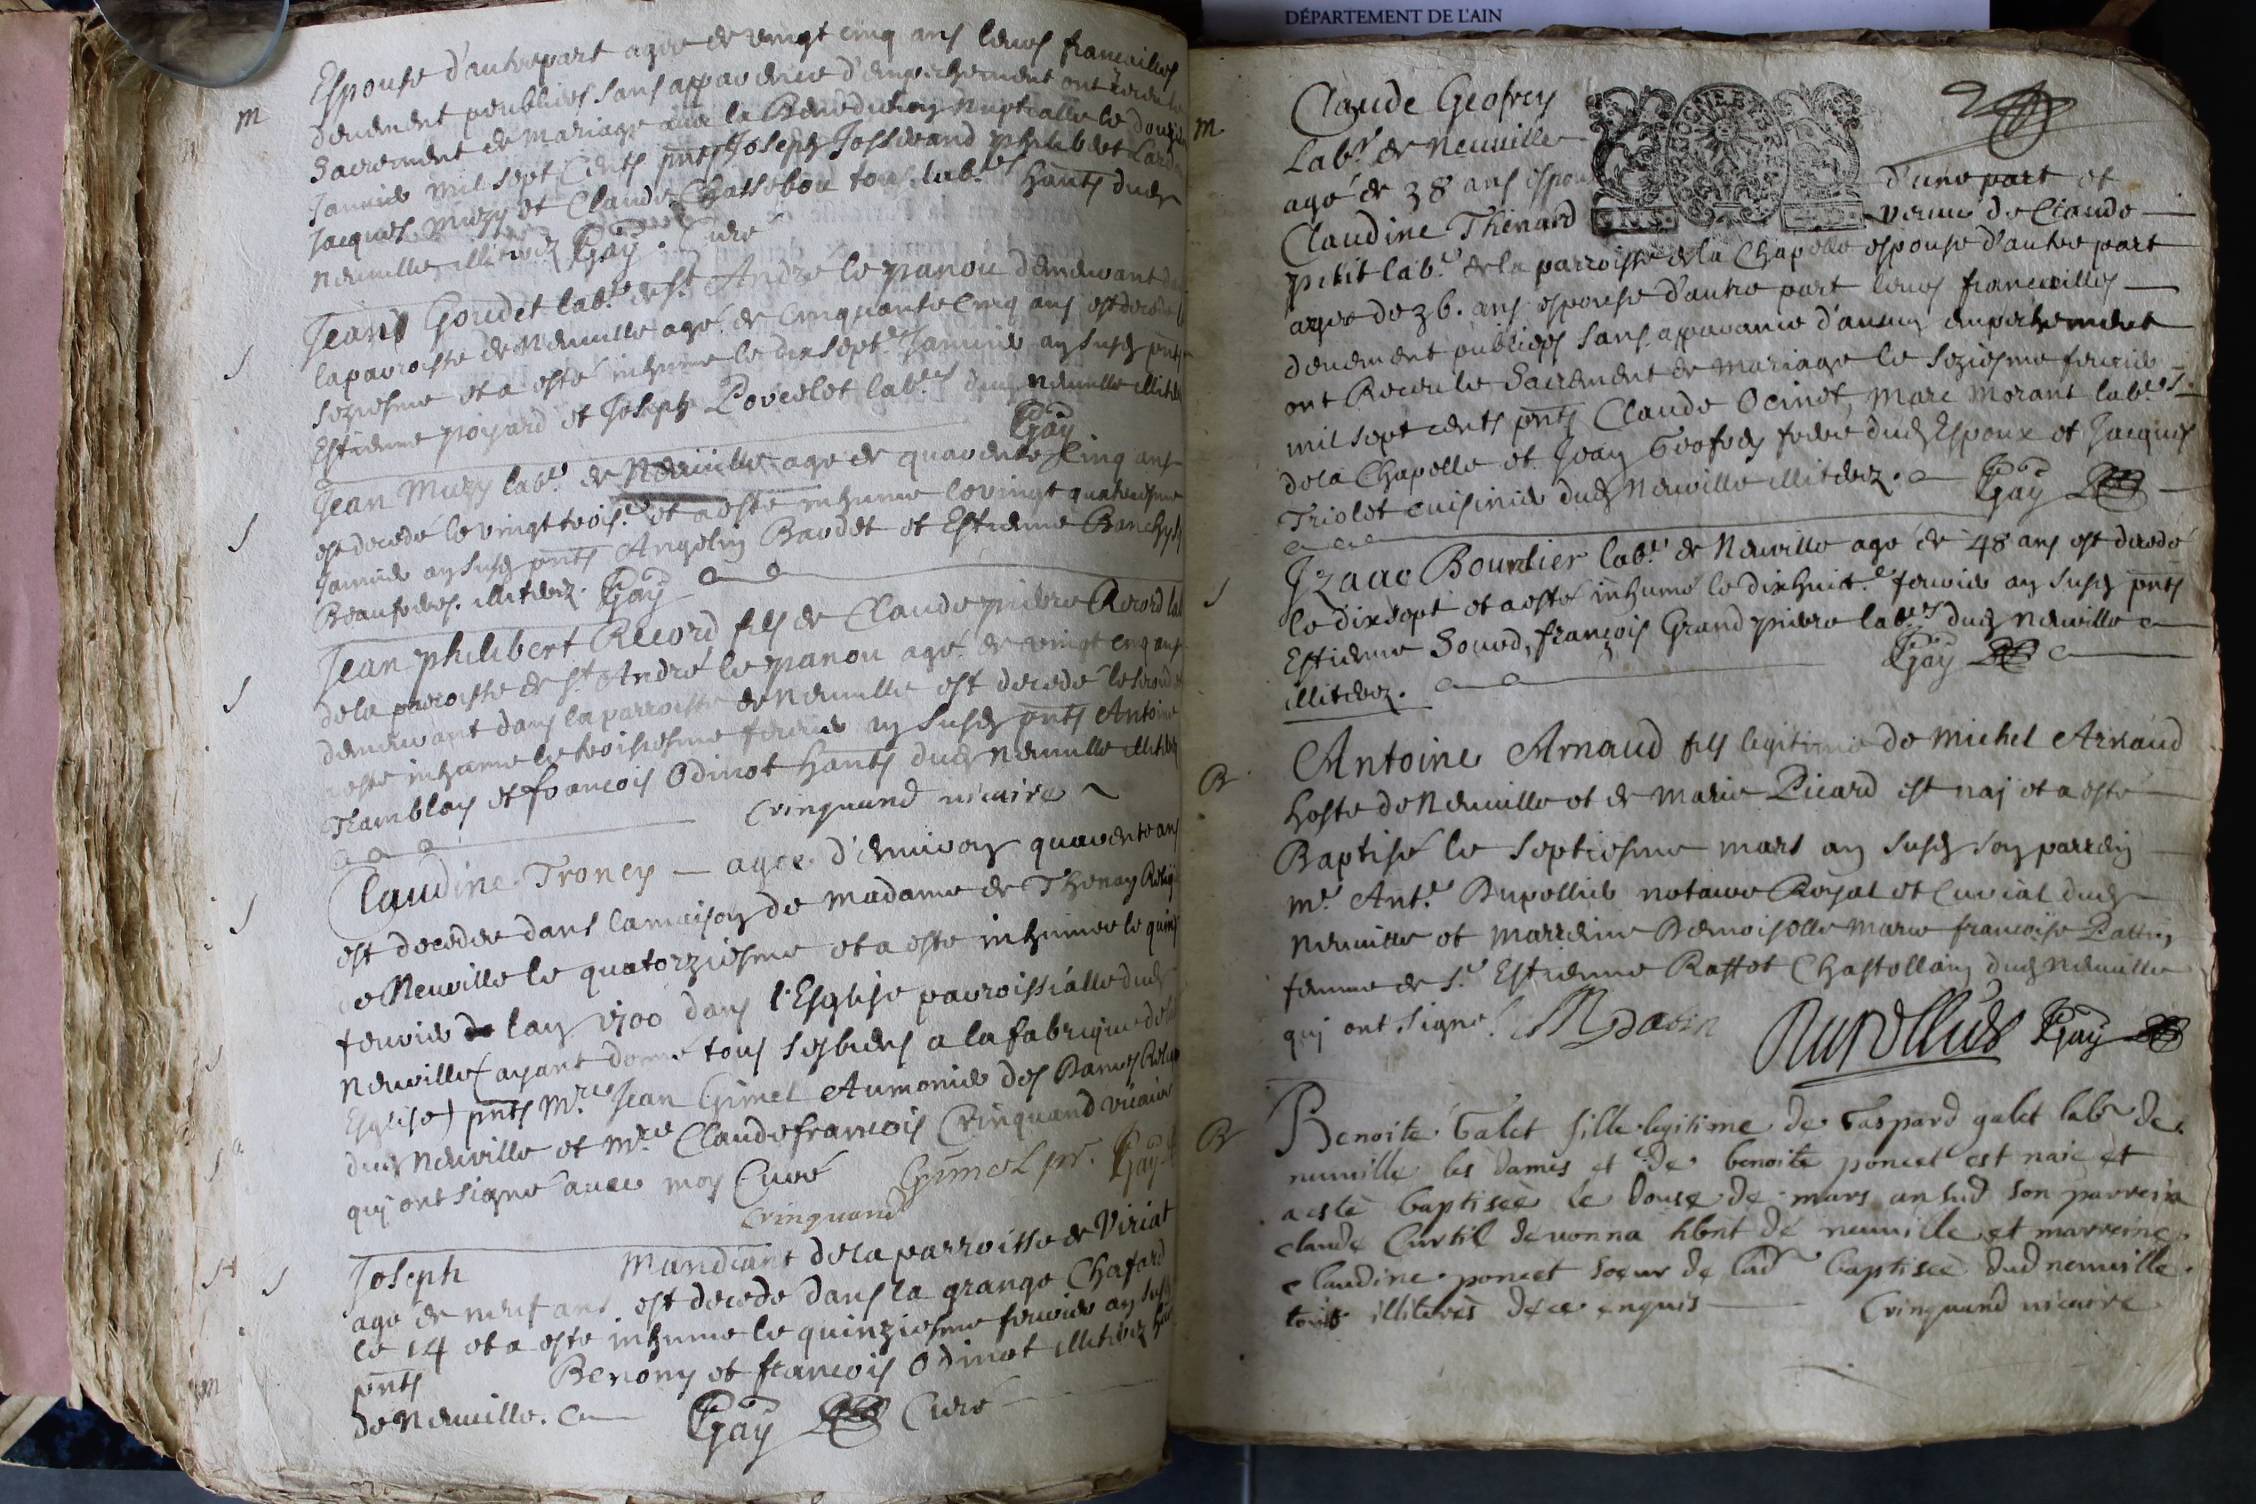 DÉPARTEMENT DE L'AIN
Espouse d'autrepart agée de vingt cinq ans leurs fiancailles
deuement publiées sans apparence d'empechement ont receu le
Sacrement de mariage avec la Benediction Nuptialle le douziè
Janvier mil sept Cents pnts Joseph Josserand philibert
Jacques Muzy et Claude Chassebou tous lab.rs hants dud
Neuville illiterez Gay Curé
m
Jean Goudet lab.r de St André le panou demeurant d
laparroisse de Neuville agé de cinquante cinq ans est decedé l
seziesme et a esté inhumé le dix sept.e Janvier an susd pnts
Estienne poyard et Joseph Porcelet lab.rs dud Neuville illit
Gay
S
Jean Muzy lab.r de Neuville agé de quarente cinq ans
est decedé le vingt trois.e et a esté inhumé le vingt quatriesme
Janvier an susd pnts Angelin Baudet et Estienne Banchy
Beaufreres. illiterez. Gay
S
Jean philibert Record fils de Claude pierre Record lab
dela parroisse de St André le panou agé de vingt cinq ans
demeurant dans la parroisse de Neuville est decedé le second
esté inhumé le troisiesme fevrier an susd pnts Antoine
Tramblay et francois Odinot hants dud Neuville illiterez
Crinquand vicaire
S
Claudine Troncy — agée d'environ quarente ans
est decedée dans la maison de madame de Thenay Relig
de Neuville le quatorziesme et a esté inhumée le quinz
fevrier de lan 1700 dans l'Esglise parroissialle dud
Neuville (ayant donné tous ses biens a la fabrique de la
Esglise) pnts Mre Jean Gimel Aumonier des Dames Relig
dud Neuville et Mre Claude francois Crinquand vicaire
qui ont signé avec moy Curé Gimel pr. Gay
Crinquand
S
Joseph Mandiant dela parroisse de Viriat
agé de neuf ans est decedé dans la grange Chafard
le 14 et a esté inhumé le quinziesme fevrier an susd
pnts Benony et francois Odinot illiterez
de Neuville. Gay Curé
S
Claude Geofrey
Lab.r de Neuville
agé de 38 ans espou d'une part et
Claudine Thenard veuve de Claude
petit lab.r de la parroisse de la Chapelle espouse d'autre part
agée de 36. ans espouse d'autre part leurs fiancailles
deuement publiees sans apparance d'aucun empechement
ont Receu le Sacrement de mariage le seziesme fevrier
mil sept cents pnts Claude Ocinet, Marc Morant lab.rs
dela Chapelle et Jean Geofrey frere dud Espoux et Jacques
Triolet cuisinier dud Neuville illiterez. Gay
m
Izaac Bourlier lab.r de Neuville agé de 48 ans est decedé
le dixsept et a esté inhumé le dixhuit.e fevrier an susd pnts
Estienne Sourd, françois Grandpierre lab.rs dud Neuville
illiterez. Gay
S
Antoine Arnaud fils legitime de Michel Arnaud
hoste de Neuville et de Marie Picard est naj et a esté
Baptisé le septiesme mars an susd son parrein
Mr. Ant.e Dupellier notaire Royal et Curial dud
Neuville et marreine Demoiselle Marie françoise Pattin
femme de Sr Estienne Raffet Chastellain dud Neuville
qui ont signé. Dupellier Gay
B
Benoite Galet fille legitime de Gaspard galet labr de
neuville les dames et de benoite poncet est naie et
a esté baptisée le douse de mars an sud son parrein
claude Curtil de vonna hbnt de neuville et marreine
claudine poncet soeur de lad baptisée dud neuville
tous illiterés de ce enquis — Crinquand vicaire
B